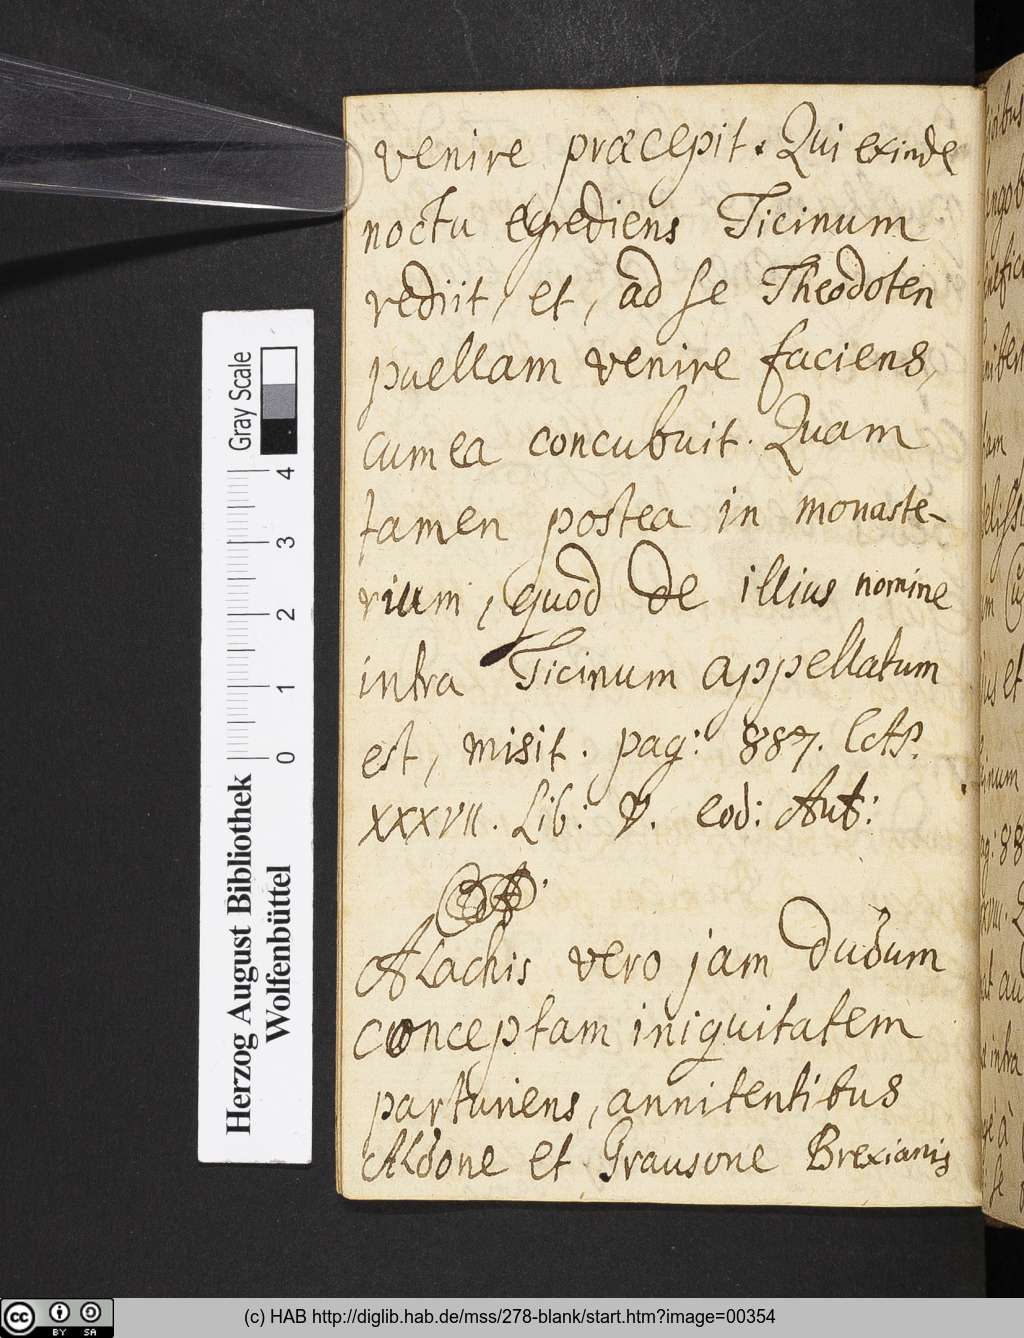 venire præcepit. Qui exinde
noctu egrediens Ticinum
rediit, et, ad se Theodoten
puellam venire faciens,
cum ea concubuit. Quam
tamen postea in monaste-
rium, quod de illius nomine
intra Ticinum appellatum
est, misit. pag: 887.
XXXVII. Lib: V. eod: Aut:
Alachis vero jam dudum
conceptam iniquitatem
parturiens, annitentibus
Aldone et Grausone Brexianis
Gray Scale
4
3
2
1
0
Herzog August Bibliothek
Wolfenbüttel
cc BY SA
(c) HAB http://diglib.hab.de/mss/278-blank/start.htm?image=00354